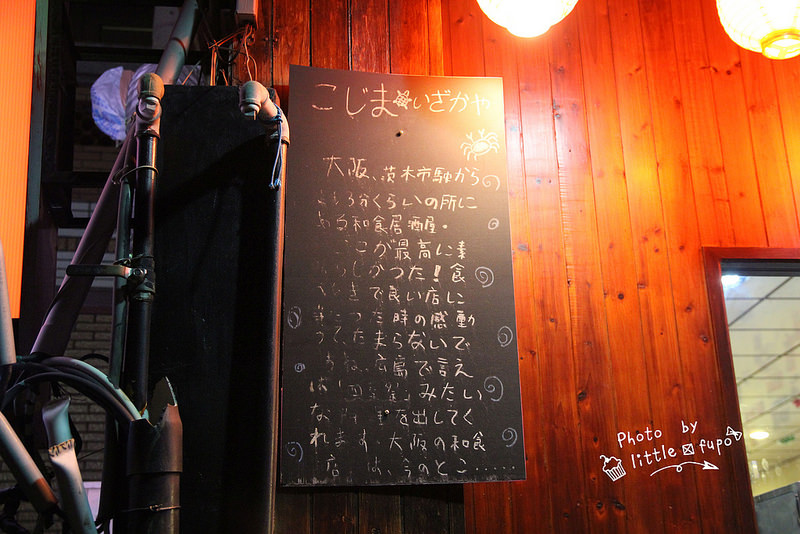 こじま いざかや
大阪、茨木市駅から
3分くらいの所に
ある和食居酒屋・
ここが最高に素
らしかった！食
きで良い店に
った時の感動
って、たまらないで
すね。広島で言え
ば みたい
な を出してく
れます。大阪の和食
店 は、今のとこ.....
Photo by
little fupo